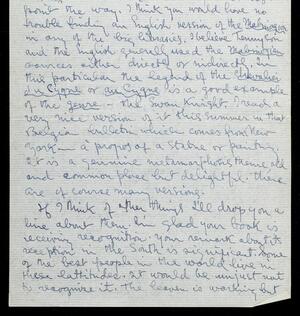 point the way. I think you would have no
trouble finding an English version of the Mabinogion
in any of the big libraries. I believe Tennyson
and the English generally used the Mabinogion
sources either directly or indirectly. In
this particular the legend of the Chevalier
du Cygne or au Cygne is a good example
of the genre - the Swan Knight. I read a
very nice version of it this summer in that
Belgian bulletin which comes from New
York in a propos of a statue or painting.
It is a genuine metamorphosic theme, old
and common place but delightful. There
are of course many versions.
If I think of other things I'll drop you a
line about them. I'm glad your book is
receiving recognition. Your remark about its
reception in the South is significant. Some
of the best people in the world live in
these lattitudes. It would be unjust not
to recognize it. The leaven is working but